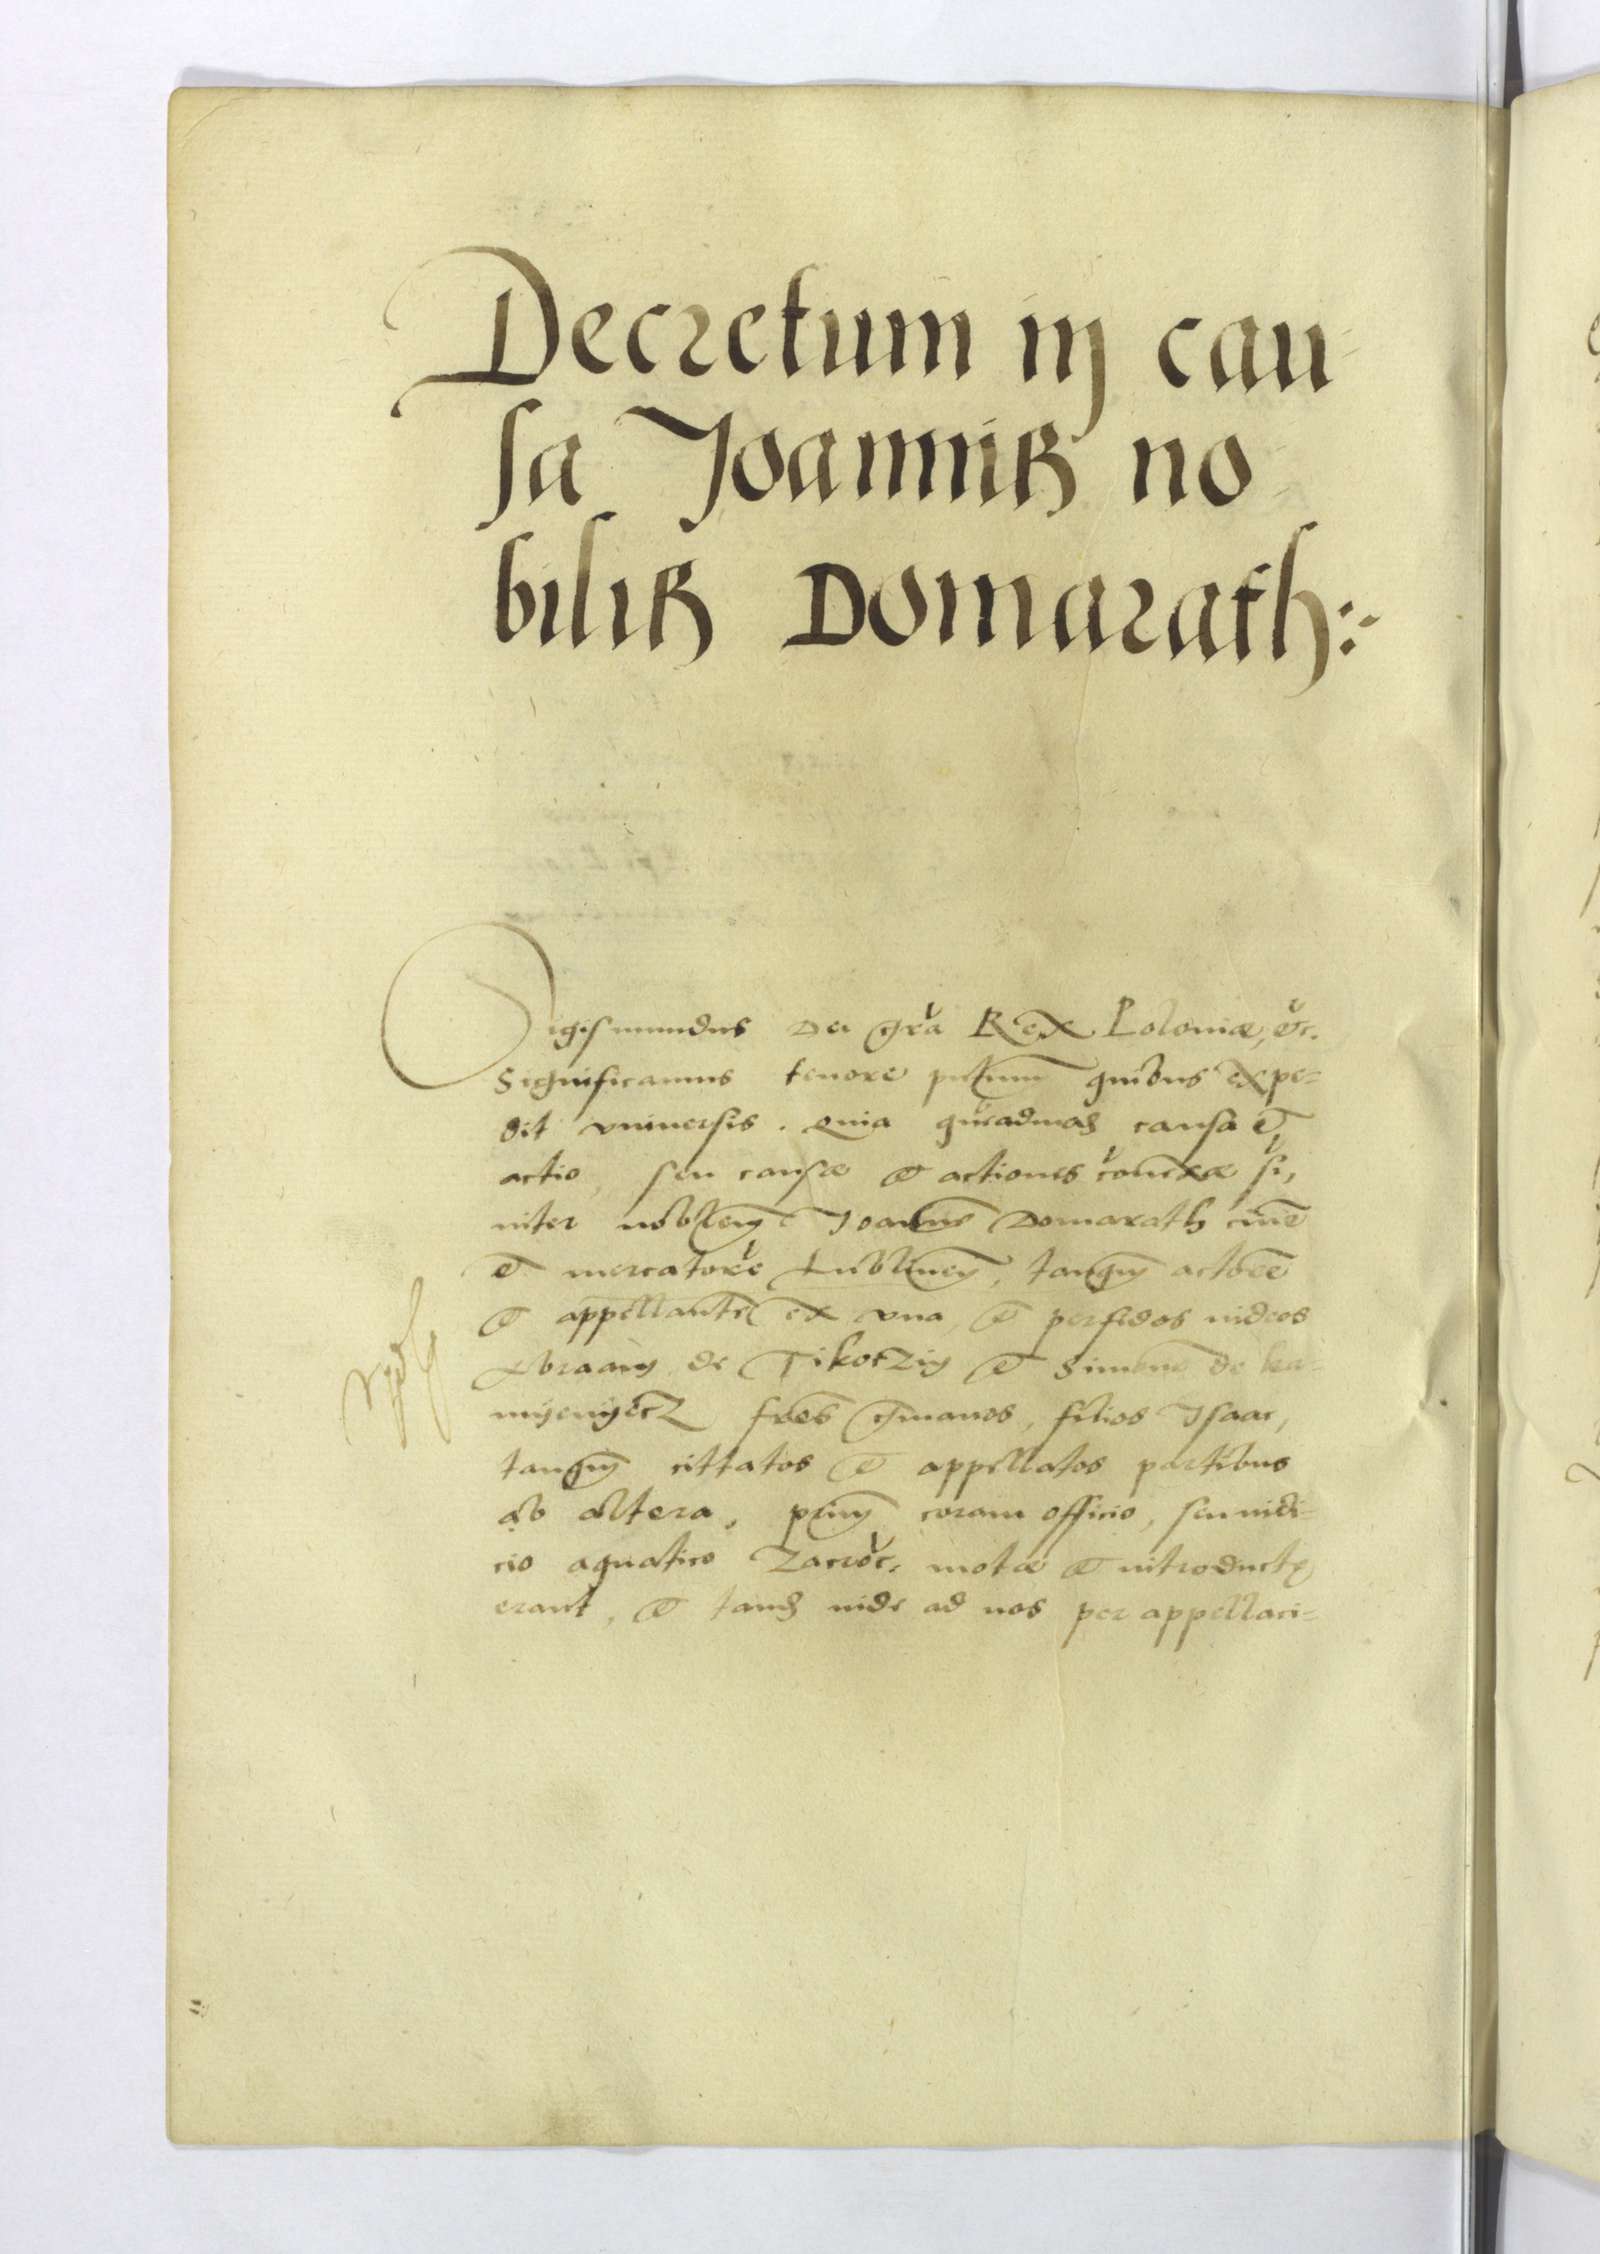 Decretum in cau-
sa Joannis no-
bilis Domarath:
Sigismundus Dei gra Rex Poloniæ, etc.
Significamus tenore pntium quibus expe-
dit universis. Quia quemadmod causa et
actio, seu causæ et actiones conexæ
inter noblem Joanne Domarath cive
et mercatore Lublinen, tanqm actore
et appellante ex una, et perfidos iudeos
Abraam de Tikotzin et Simone de Ka-
myenyecz fres gmanos, filios Isaac,
tanqm cittatos et appellatos partibus
ab altera, primum coram officio, seu iudi-
cio aquatico Zacroc, motæ et introductę
erant, et tand inde ad nos per appellaci-